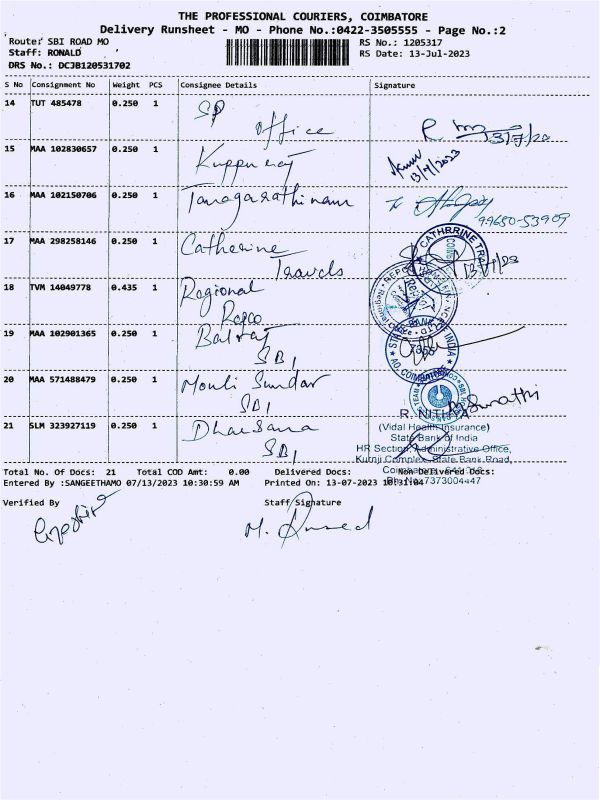 THE PROFESSIONAL COURIERS, COIMBATORE
Delivery Runsheet - MO - Phone No.:0422-3505555 - Page No.:2
Route: SBI ROAD MO
RS No.: 1205317
Staff: RONALD
RS Date: 13-Jul-2023
DRS No.: DCJB120531702
S No Consignment No Weight PCS Consignee Details Signature
14 TUT 485478 0.250 1 SP
office
13/7/20
15 MAA 102830657 0.250 1 Kuppuraj
13/7/2023
16 MAA 102150706 0.250 1 Tanagarathinam
99650-53909
17 MAA 298258146 0.250 1 Catherine
Travels
13/7/23
CATHRRINE TRA
18 TVM 14049778 0.435 1 Regional
Repco
19 MAA 102901365 0.250 1 Balraj
SBI
20 MAA 571488479 0.250 1 Mouli Sundar
SBI
R. NITHYA
21 SLM 323927119 0.250 1
SBI
(Vidal Health Insurance)
State Bank of India
HR Section, Administrative Office,
Kurinji Complex, State Bank Road,
Total No. Of Docs: 21 Total COD Amt: 0.00 Delivered Docs: Non-Delivered Docs:
Entered By :SANGEETHAMO 07/13/2023 10:30:59 AM Printed On: 13-07-2023 10:31:04
7373004447
Verified By Staff Signature